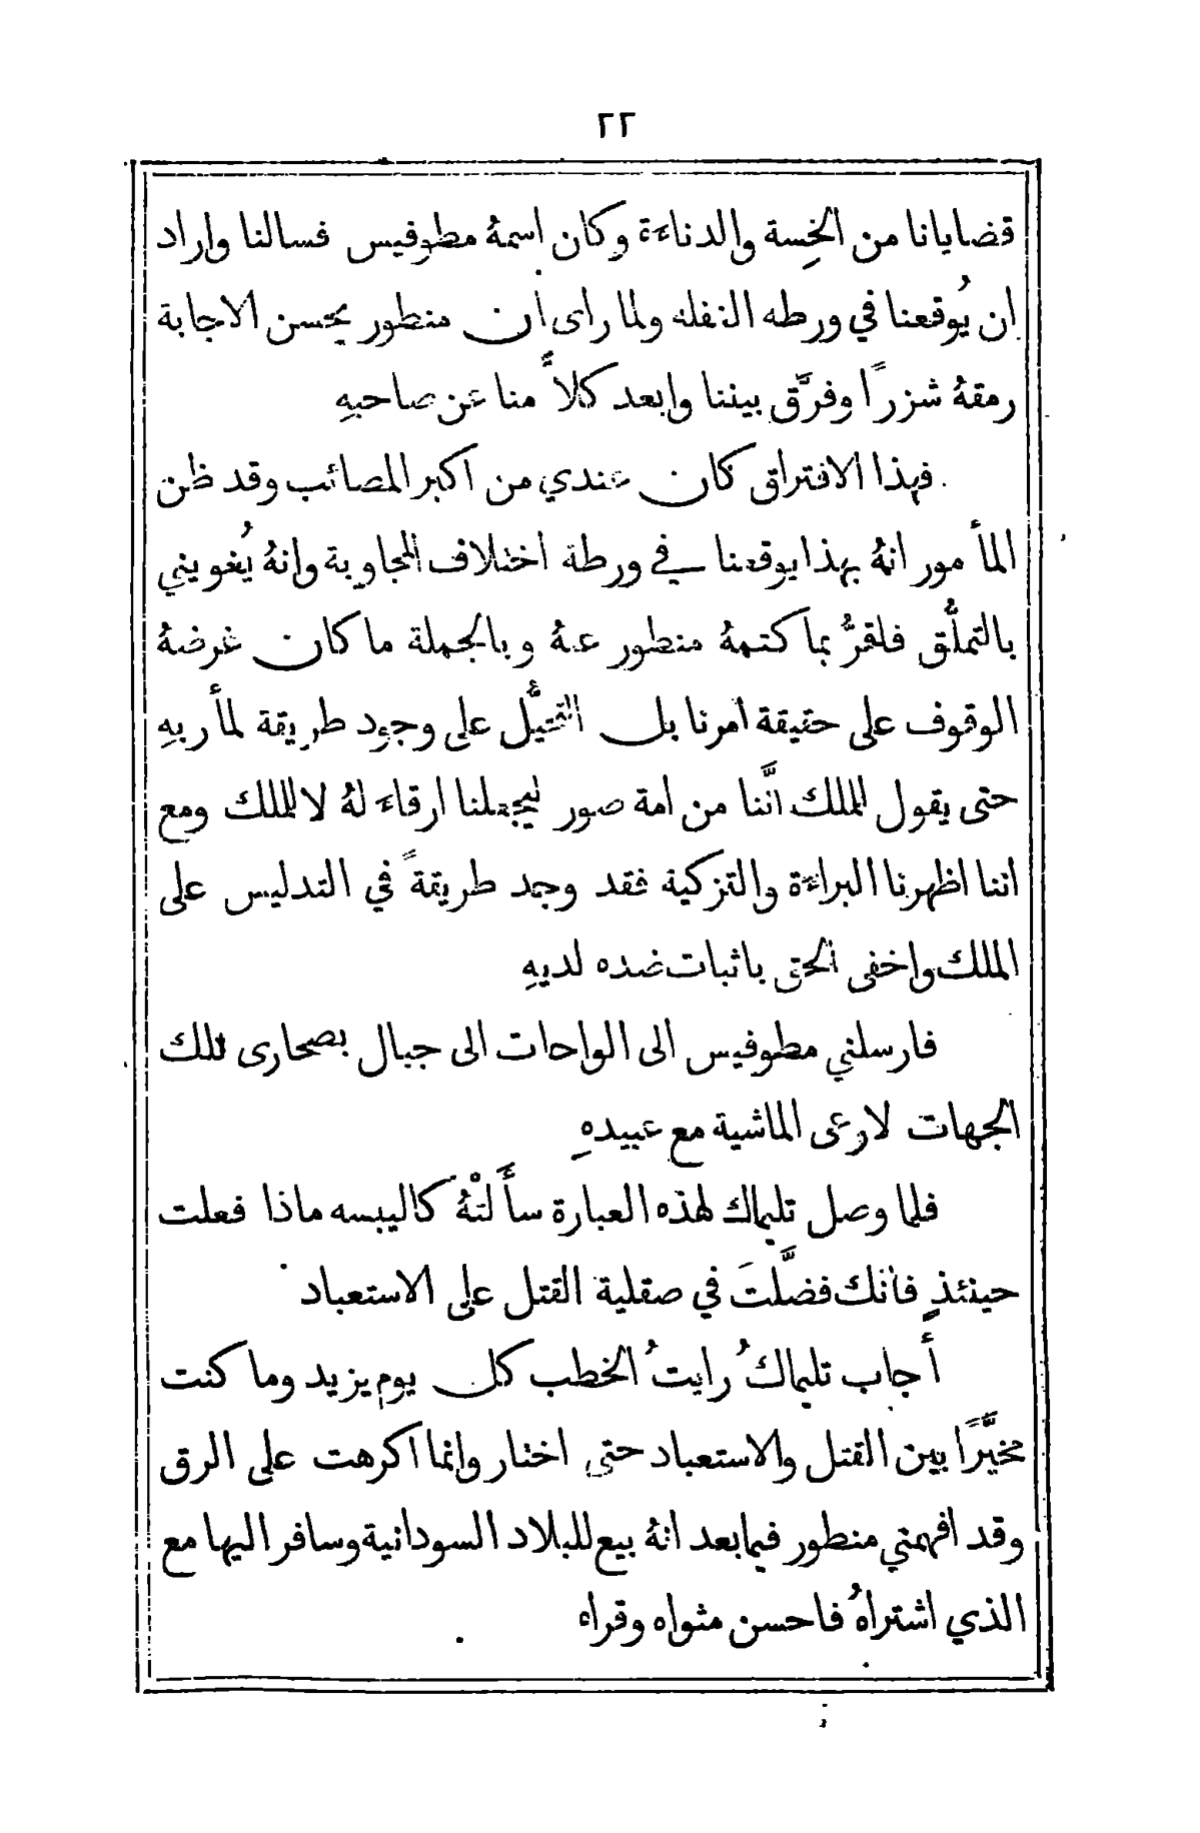 ٢٢
قضايانا من الخِسة والدناءة وكان اسمهُ مطوفيس فسالنا واراد
ان يُوقعنا في ورطه النفله ولما راى أن منطور يحسن الاجابة
رمقهُ شزرًا وفرَّق بيننا وابعد كلاًّ منا عن صاحبهِ
فهذا الافتراق كان عندي من اكبر المصائب وقد ظن
المأمور انهُ بهذا يوقعنا في ورطة اختلاف المجاوبة وانهُ يُغويني
بالتملُّق فلقرُّ بما كتمهُ منطور عنهُ وبالجملة ما كان غرضهُ
الوقوف على حقيقة امرنا بل التحيُّل على وجود طريقة لمأربهِ
حتى يقول للملك انَّنا من امة صور ليجعلنا ارقاء لهُ لا للملك ومع
اننا اظهرنا البراءة والتزكية فقد وجد طريقةً في التدليس على
الملك واخفى الحق باثبات ضده لديهِ
فارسلني مطوفيس الى الواحات الى جبال بصحارى تلك
الجهات لارعى الماشية مع عبيدهِ
فلما وصل تليماك لهذه العبارة سأَلتْهُ كاليبسه ماذا فعلت
حينئذٍ فانك فضَّلتَ في صقلية القتل على الاستعباد
أجاب تليماكُ رايتُ الخطب كل يوم يزيد وما كنت
مخيَّرًا بين القتل والاستعباد حتى اختار وانما اكرهت على الرق
وقد افهمني منطور فيما بعد انهُ بيع للبلاد السودانية وسافر اليها مع
الذي اشتراهُ فاحسن مثواه وقراه